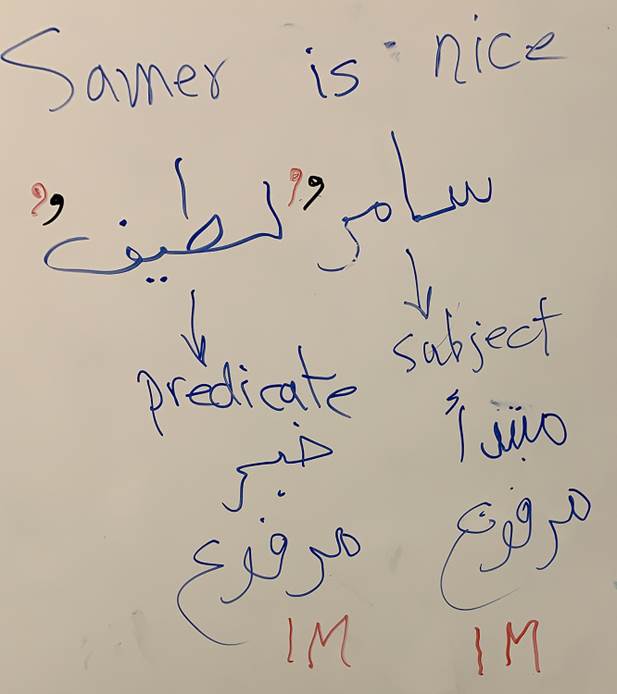 Samer is nice
سامرٌ لطيفٌ
subject
predicate
مبتدأ
خبر
مرفوع
مرفوع
1M
1M